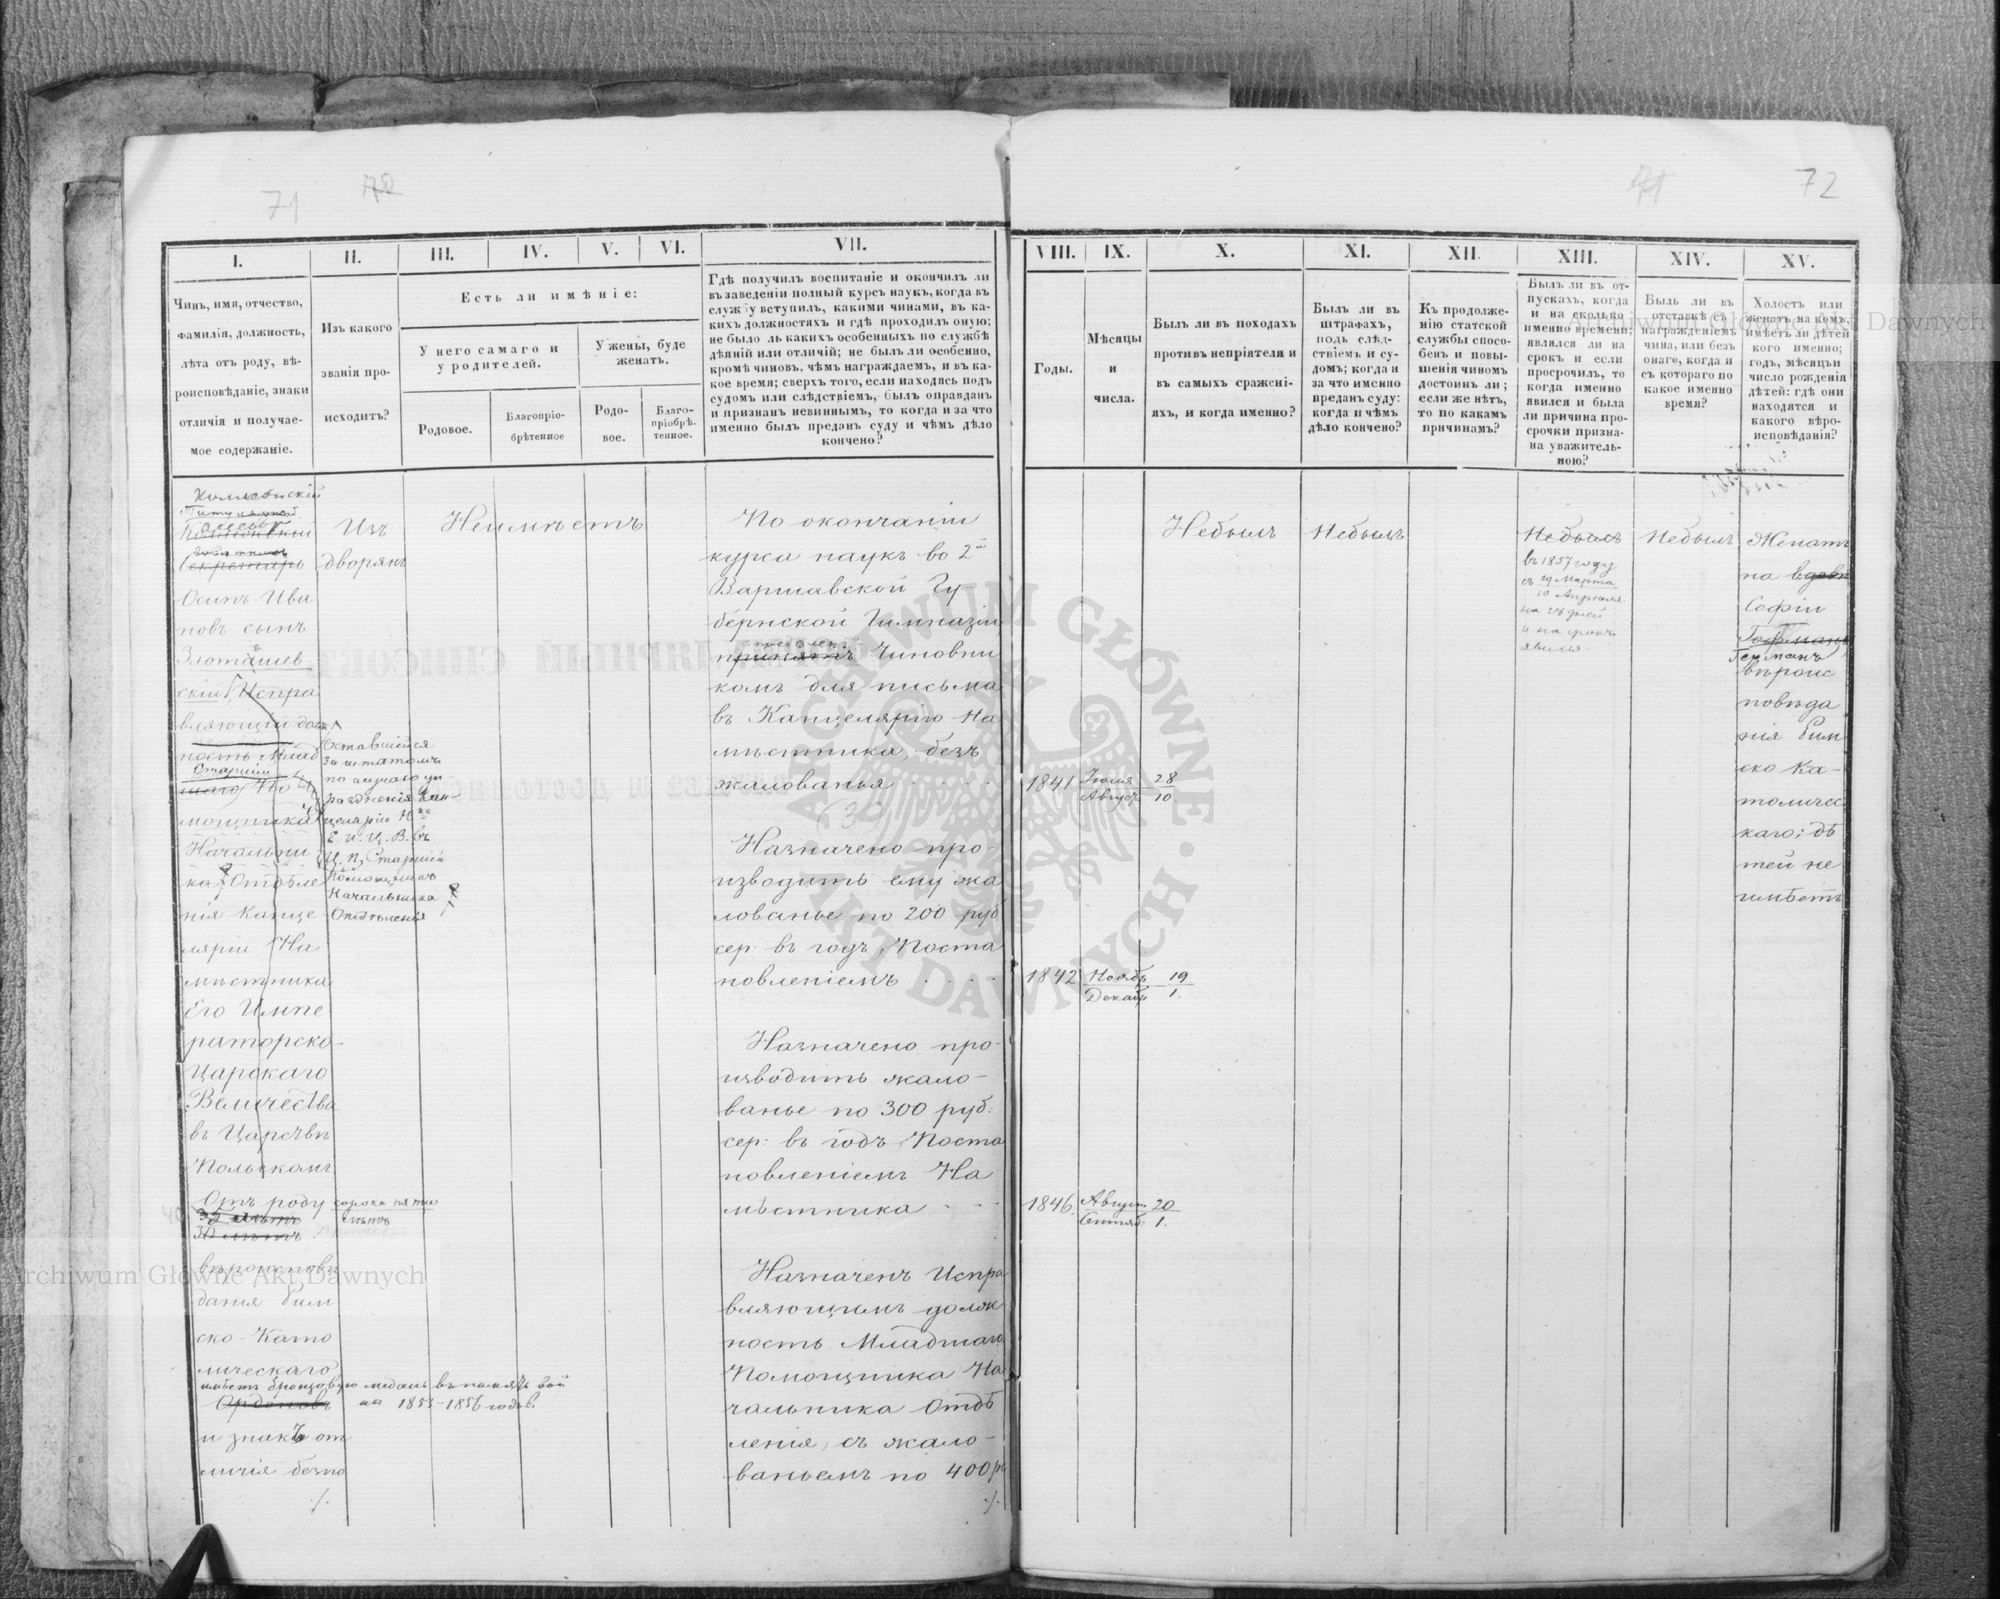 71
72
72
I.
Чинъ, имя, отчество,
фамилія, должность,
лѣта отъ роду, вѣ-
роисповѣданіе, знаки
отличія и получае-
мое содержаніе.
II.
Изъ какого
званія про-
исходитъ?
III.
IV.
V.
VI.
Есть ли имѣніе:
У него самаго и
у родителей.
У жены, буде
женатъ.
Родовое.
Благопріо-
брѣтенное
Родо-
вое.
Благо-
пріобрѣ.
тенное.
VII.
Гдѣ получилъ воспитаніе и окончилъ ли
въ заведеніи полный курсъ наукъ, когда въ
службу вступилъ, какими чинами, въ ка-
кихъ должностяхъ и гдѣ проходилъ оную;
не было ль какихъ особенныхъ по службѣ
дѣяній или отличій; не былъ ли особенно,
кромѣ чиновъ, чѣмъ награждаемъ, и въ ка-
кое время; сверхъ того, если находясь подъ
судомъ или слѣдствіемъ, былъ оправданъ
и признанъ невиннымъ, то когда и за что
именно былъ преданъ суду и чѣмъ дѣло
кончено?
VIII.
Годы.
IX.
Мѣсяцы
и
числа.
X.
Былъ ли въ походахъ
противъ непріятеля и
въ самыхъ сражені-
яхъ, и когда именно?
XI.
Былъ ли въ
штрафахъ,
подъ слѣд-
ствіемъ и су-
домъ; когда и
за что именно
преданъ суду:
когда и чѣмъ
дѣло кончено?
XII.
Къ продолже-
нію статской
службы спосо-
бенъ и повы-
шенія чиномъ
достоинъ ли;
если же нѣтъ,
то по какамъ
причинамъ?
XIII.
Былъ ли въ от-
пускахъ, когда
и на сколько
именно времени;
являлся ли на
срокъ и если
просрочилъ, то
когда именно
явился и была
ли причина про-
срочки призна-
на уважитель-
ною?
XIV.
Былъ ли въ
отставкѣ съ
награжденіемъ
чина, или безъ
онаго, когда и
съ котораго по
какое именно
время?
XV.
Холостъ или
женатъ на комъ,
имѣетъ ли дѣтей
кого именно;
годъ, мѣсяцъ и
число рожденія
дѣтей: гдѣ они
находятся и
какого вѣро-
исповѣданія?
Секретарь
Осипъ Ива
новъ сынъ
скій, Испра
вляющій долж
ность Млад
Старшій
шаго По
мощника
Начальни
ка Отдѣле
нія Канце
ляріи На
мѣстника
Его Импе
раторско-
Царскаго
Величества
въ Царствѣ
Польскомъ
Отъ роду сорокъ пять
лѣтъ
вѣроисповѣ
данія Рим
ско-Като
лическаго
имѣетъ бронзовую медаль въ память вой
ны 1853-1856 годовъ.
Орденовъ
и знакъ от
личія безпо
./.
Оставшійся
за штатомъ
по случаю уп
раздненія Кан
целяріи
Е. И. Ц. В. въ
Ц. П, Старшій
Помощникъ
Начальника
Отдѣленія
Изъ
дворянъ
Неимѣетъ
По окончаніи
курса наукъ во 2й
Варшавской Гу
бернской Гимназіи
принятъ Чиновни
комъ для письма
въ Канцелярію На
мѣстника, безъ
жалованья . . . .
1841 Іюля 28
Август. 10
Назначено про-
изводить ему жа
лованье по 200 руб
сер. въ годъ, Поста
новленіемъ . . . .
1842 Ноябр. 19
Декабр. 1.
Назначено про-
изводить жало-
ванье по 300 руб.
сер: въ годъ, Поста
новленіемъ На
мѣстника - -
1846. Август. 20
Сентяб. 1.
Назначенъ Испра
вляющимъ долж
ность Младшаго
Помощника На
чальника Отдѣ
ленія, съ жало-
ваньемъ по 400 р.
./.
Небылъ
Небылъ
Небылъ
въ 1857 году
съ 29 Марта
10 Апрѣля
на 28 дней
и на срокъ
явился.
Небылъ
Женатъ
на вдовѣ
Софіи
Гофманъ
Германъ
вѣроис
повѣда
нія Рим
ско Ка-
толичес
каго; дѣ
тей не
имѣетъ
ARCHIWUM GŁÓWNE AKT DAWNYCH
Archiwum Główne Akt Dawnych
Archiwum Główne Akt Dawnych